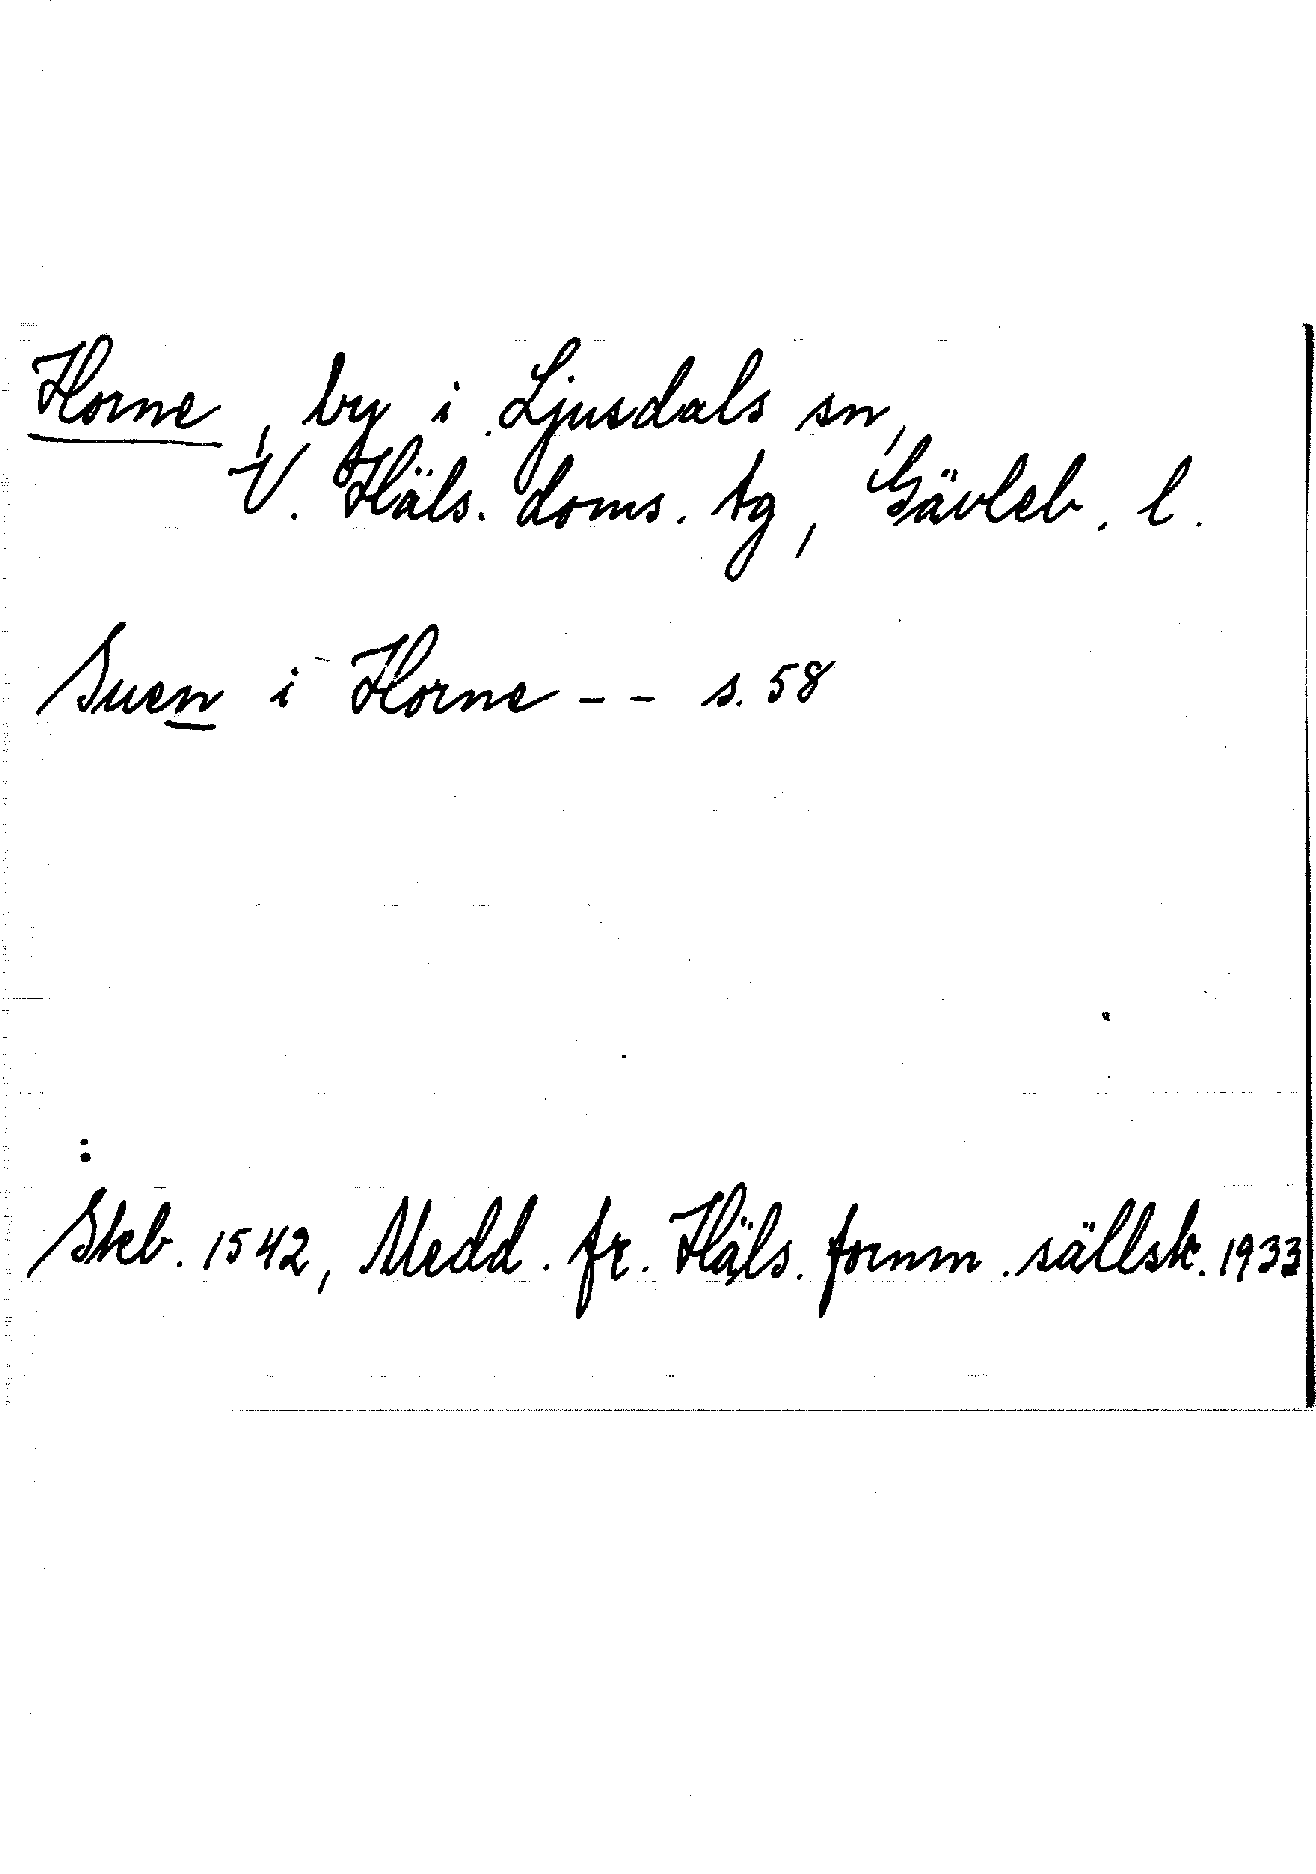 Horne, by i Ljusdals sn,
V. Häls. doms. tg, Gävleb. l.
Suen i Horne - - s. 58
:
Skb. 1542, Medd. fr. Häls. fornm. sällsk. 1933